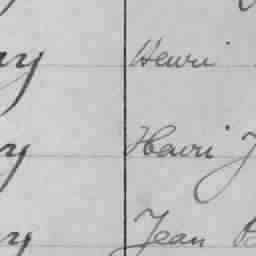 ry Henri
ry Henri J
ry Jean B